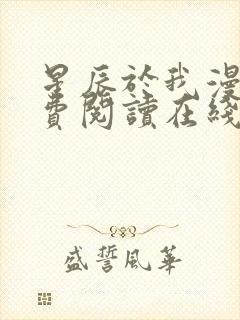 星辰於我漫
費閱讀在綫
盛誓風華